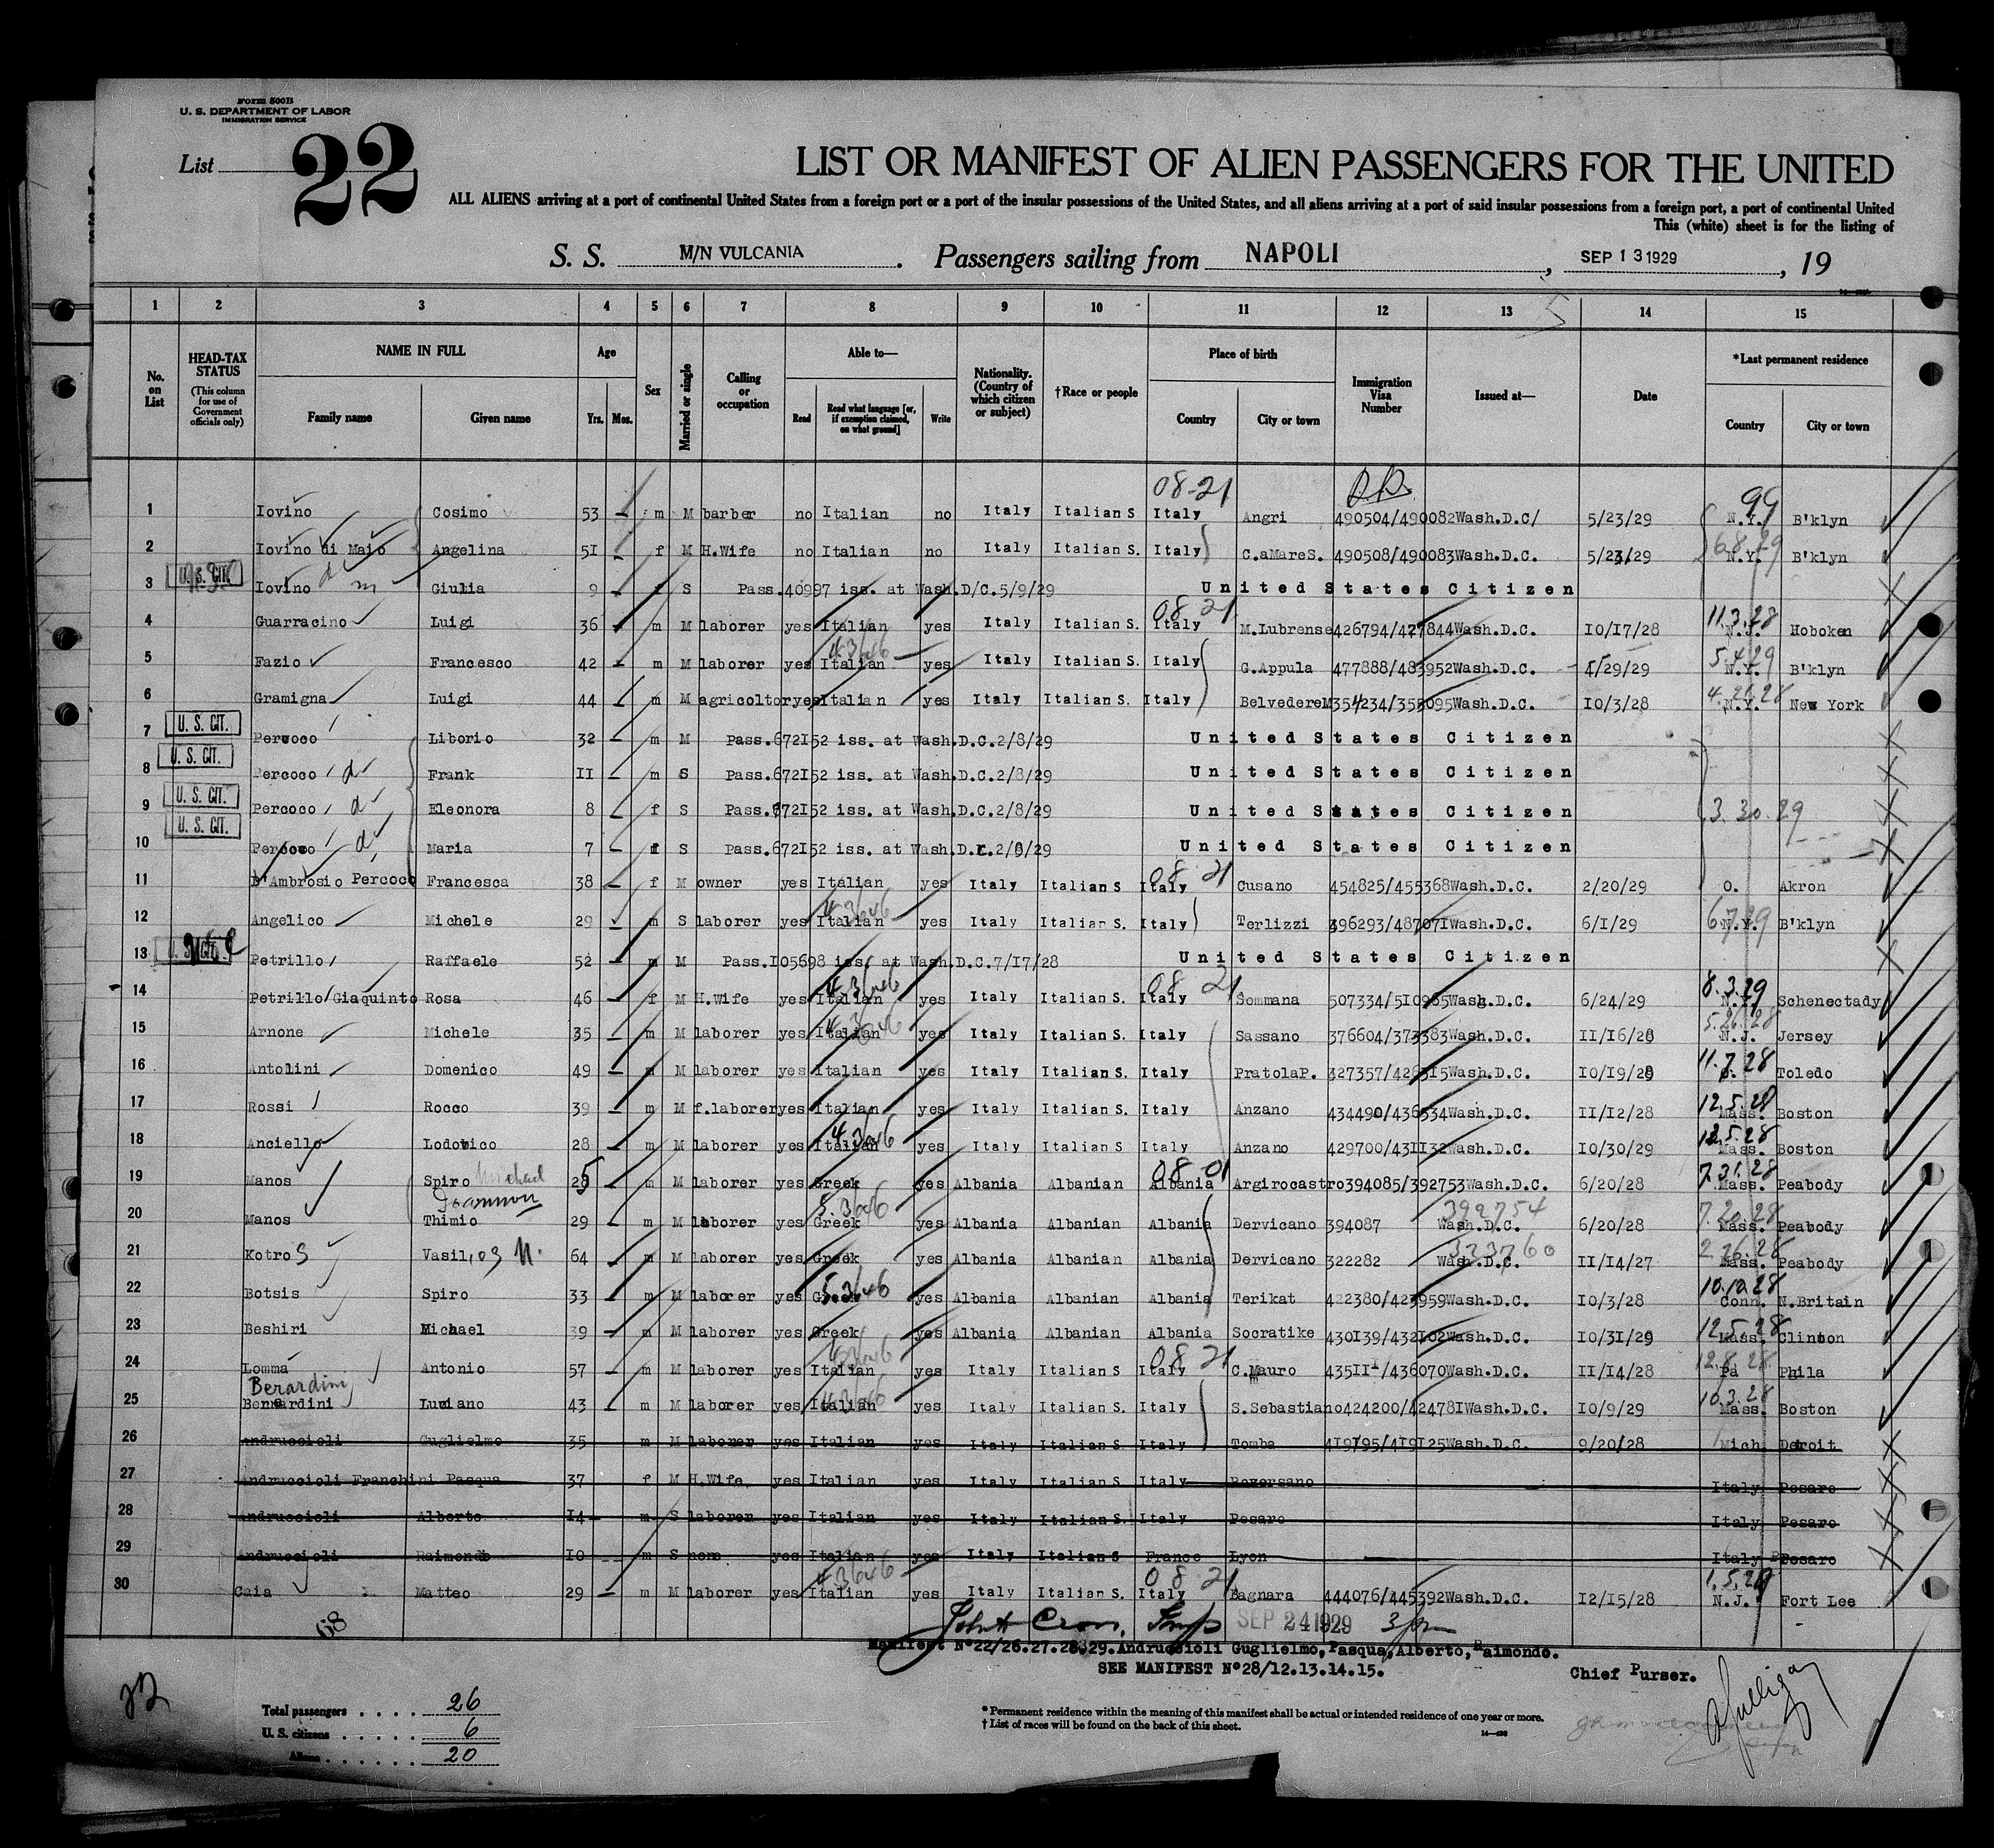 Form 500B
U. S. DEPARTMENT OF LABOR
IMMIGRATION SERVICE
List 22
LIST OR MANIFEST OF ALIEN PASSENGERS FOR THE UNITED
ALL ALIENS arriving at a port of continental United States from a foreign port or a port of the insular possessions of the United States, and all aliens arriving at a port of said insular possessions from a foreign port, a port of continental United
This (white) sheet is for the listing of
S. S. M/N VULCANIA. Passengers sailing from NAPOLI, SEP 13 1929, 19
1 2 3 4 5 6 7 8 9 10 11 12 13 14 15
No. on List
HEAD-TAX STATUS (This column for use of Government officials only)
NAME IN FULL Family name Given name
Age Yrs. Mos.
Sex
Married or single
Calling or occupation
Able to— Read Read what language [or, if exemption claimed, on what ground] Write
Nationality. (Country of which citizen or subject)
†Race or people
Place of birth Country City or town
Immigration Visa Number
Issued at—
Date
*Last permanent residence Country City or town
08-21 99
1 Iovino Cosimo 53 m M barber no Italian no Italy Italian S Italy Angri 490504/490082 Wash.D.C/ 5/23/29 N.Y. B'klyn
2 Iovino di Maio Angelina 51 f M H.Wife no Italian no Italy Italian S. Italy C.aMareS. 490508/490083 Wash.D.C. 5/23/29 N.Y. B'klyn
3 U. S. CIT. Iovino Giulia 9 f S Pass.40997 iss. at Wash.D/C.5/9/29 United States Citizen
4 Guarracino Luigi 36 m M laborer yes Italian yes Italy Italian S. Italy M.Lubrense 426794/427844 Wash.D.C. 10/17/28 11.3.28 N.J. Hoboken
5 Fazio Francesco 42 m M laborer yes Italian yes Italy Italian S. Italy G.Appula 477888/483952 Wash.D.C. 4/29/29 5.4.29 N.Y. B'klyn
6 Gramigna Luigi 44 m M agricoltor yes Italian yes Italy Italian S. Italy BelvedereM 354234/355095 Wash.D.C. 10/3/28 N.Y. New York
7 U. S. CIT. Percoco Liborio 32 m M Pass.672152 iss. at Wash.D.C.2/8/29 United States Citizen
8 U. S. CIT. Percoco Frank 11 m S Pass.672152 iss. at Wash.D.C.2/8/29 United States Citizen
9 U. S. CIT. Percoco Eleonora 8 f S Pass.672152 iss. at Wash.D.C.2/8/29 United States Citizen 3.30.29
10 U. S. CIT. Percoco Maria 7 f S Pass.672152 iss. at Wash.D.C.2/8/29 United States Citizen
11 D'Ambrosio Percoco Francesca 38 f M owner yes Italian yes Italy Italian S Italy Cusano 454825/455368 Wash.D.C. 2/20/29 O. Akron
12 Angelico Michele 29 m S laborer yes Italian yes Italy Italian S. Italy Terlizzi 396293/487071 Wash.D.C. 6/1/29 6.7.29 N.Y. B'klyn
13 U. S. CIT. Petrillo Raffaele 52 m M Pass.105698 iss. at Wash.D.C.7/17/28 United States Citizen
14 Petrillo/Giaquinto Rosa 46 f M H.Wife yes Italian yes Italy Italian S. Italy Sommana 507334/510965 Wash.D.C. 6/24/29 8.3.29 N.Y. Schenectady
15 Arnone Michele 35 m M laborer yes Italian yes Italy Italian S. Italy Sassano 376604/373383 Wash.D.C. 11/16/28 N.J. Jersey
16 Antolini Domenico 49 m M laborer yes Italian yes Italy Italian S. Italy PratolaP. 327357/426315 Wash.D.C. 10/19/28 11.7.28 O. Toledo
17 Rossi Rocco 39 m M f.laborer yes Italian yes Italy Italian S. Italy Anzano 434490/436534 Wash.D.C. 11/12/28 12.5.28 Mass. Boston
18 Anciello Lodovico 28 m M laborer yes Italian yes Italy Italian S Italy Anzano 429700/431132 Wash.D.C. 10/30/29 12.5.28 Mass. Boston
19 Manos Spiro Michael 25 m M laborer yes Greek yes Albania Albanian Albania Argirocastro 394085/392753 Wash.D.C. 6/20/28 7.31.28 Mass. Peabody
20 Manos Thimio 29 m M laborer yes Greek yes Albania Albanian Albania Dervicano 394087 392754 Wash.D.C. 6/20/28 Mass. Peabody
21 Kotros Vasilios N. 64 m M laborer yes Greek yes Albania Albanian Albania Dervicano 322282 323760 Wash.D.C. 11/14/27 Mass. Peabody
22 Botsis Spiro 33 m M laborer yes Greek yes Albania Albanian Albania Terikat 422380/423959 Wash.D.C. 10/3/28 Conn. N.Britain
23 Beshiri Michael 39 m M laborer yes Greek yes Albania Albanian Albania Socratike 430139/432102 Wash.D.C. 10/31/29 12.5.28 Mass. Clinton
24 Lomma Antonio 57 m M laborer yes Italian yes Italy Italian S Italy C.Mauro 435111/436070 Wash.D.C. 11/14/28 12.8.28 Pa Phila
Berardini
25 Bernardini Luciano 43 m M laborer yes Italian yes Italy Italian S. Italy S.Sebastiano 424200/424781 Wash.D.C. 10/9/29 10.3.28 Mass. Boston
26 Andruccioli Guglielmo 35 m M laborer yes Italian yes Italy Italian S. Italy Tomba 419195/419125 Wash.D.C. 9/20/28 Mich. Detroit
27 Andruccioli Franchini Pasqua 37 f M H.Wife yes Italian yes Italy Italian S Italy Italy Pesaro
28 Andruccioli Alberto 14 m S laborer yes Italian yes Italy Italian S. Italy Pesaro Italy Pesaro
29 Andruccioli Raimondo 10 m S none yes Italian yes Italy Italian S France Lyon Italy Pesaro
30 Caia Matteo 29 m M laborer yes Italian yes Italy Italian S. Italy Bagnara 444076/445392 Wash.D.C. 12/15/28 1.5.29 N.J. Fort Lee
68
SEP 24 1929
Manifest N°22/26.27.28829.Andruccioli Guglielmo,Pasqua,Alberto,Raimondo.
SEE MANIFEST N°28/12.13.14.15.
Chief Purser.
22
Total passengers . . . . 26
U. S. citizens . . . . . 6
Aliens . . . . . . 20
* Permanent residence within the meaning of this manifest shall be actual or intended residence of one year or more.
† List of races will be found on the back of this sheet.